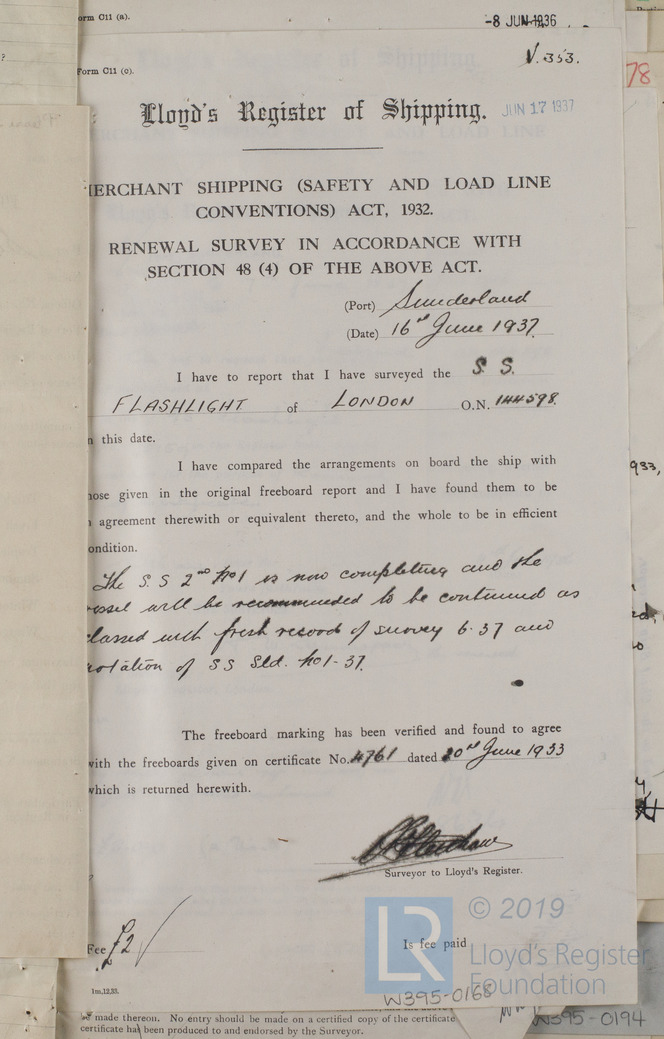 orm C11 (a).
-8 JUN 1936
Form C11 (c).
V. 353.
78
Lloyd's Register of Shipping.
JUN 17 1937
MERCHANT SHIPPING (SAFETY AND LOAD LINE
CONVENTIONS) ACT, 1932.
RENEWAL SURVEY IN ACCORDANCE WITH
SECTION 48 (4) OF THE ABOVE ACT.
(Port) Sunderland
(Date) 16th June 1937.
I have to report that I have surveyed the S. S.
FLASHLIGHT of LONDON O.N. 144598.
n this date.
I have compared the arrangements on board the ship with
hose given in the original freeboard report and I have found them to be
n agreement therewith or equivalent thereto, and the whole to be in efficient
ondition.
The S.S 2nd No1 is now completing and the
vessel will be recommended to be continued as
classed with fresh record of survey 6.37 and
notation of SS Sld. No1-37.
933,
The freeboard marking has been verified and found to agree
with the freeboards given on certificate No. 4761 dated 20th June 1933
which is returned herewith.
Surveyor to Lloyd's Register.
Fee £2
Is fee paid
1m,12,33.
LR © 2019
Lloyd's Register
Foundation
W395-0168
W395-0194
made thereon. No entry should be made on a certified copy of the certificate
certificate has been produced to and endorsed by the Surveyor.